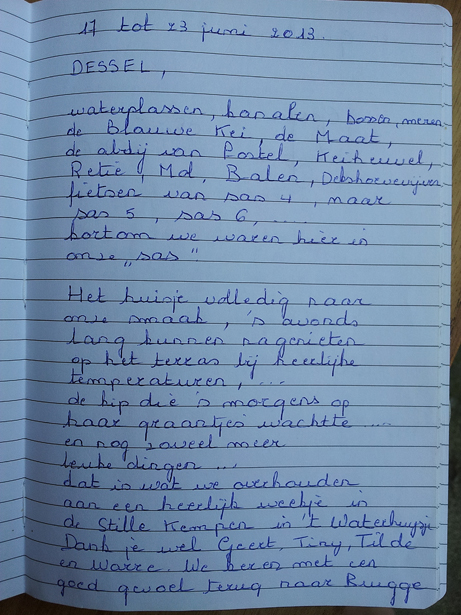 17 tot 23 juni 2013.
DESSEL,
waterplassen, kanalen, bossen, meren
de Blauwe Kei, de Maat,
de abdij van Postel, Keiheuvel,
Retie, Mol, Balen,
fietsen van sas 4, naar
sas 5, sas 6, ....
kortom we waren hier in
onze „sas"
Het huisje volledig naar
onze smaak, 's avonds
lang kunnen nagenieten
op het terras bij heerlijke
temperaturen, ...
de kip die 's morgens op
haar graantjes wachtte ...
en nog zoveel meer
leuke dingen ...
dat is wat we overhouden
aan een heerlijk weekje in
de Stille Kempen in 't Waterhuysje
Dank je wel Geert, Tiny, Tilde
en Warre. We keren met een
goed gevoel terug naar Brugge